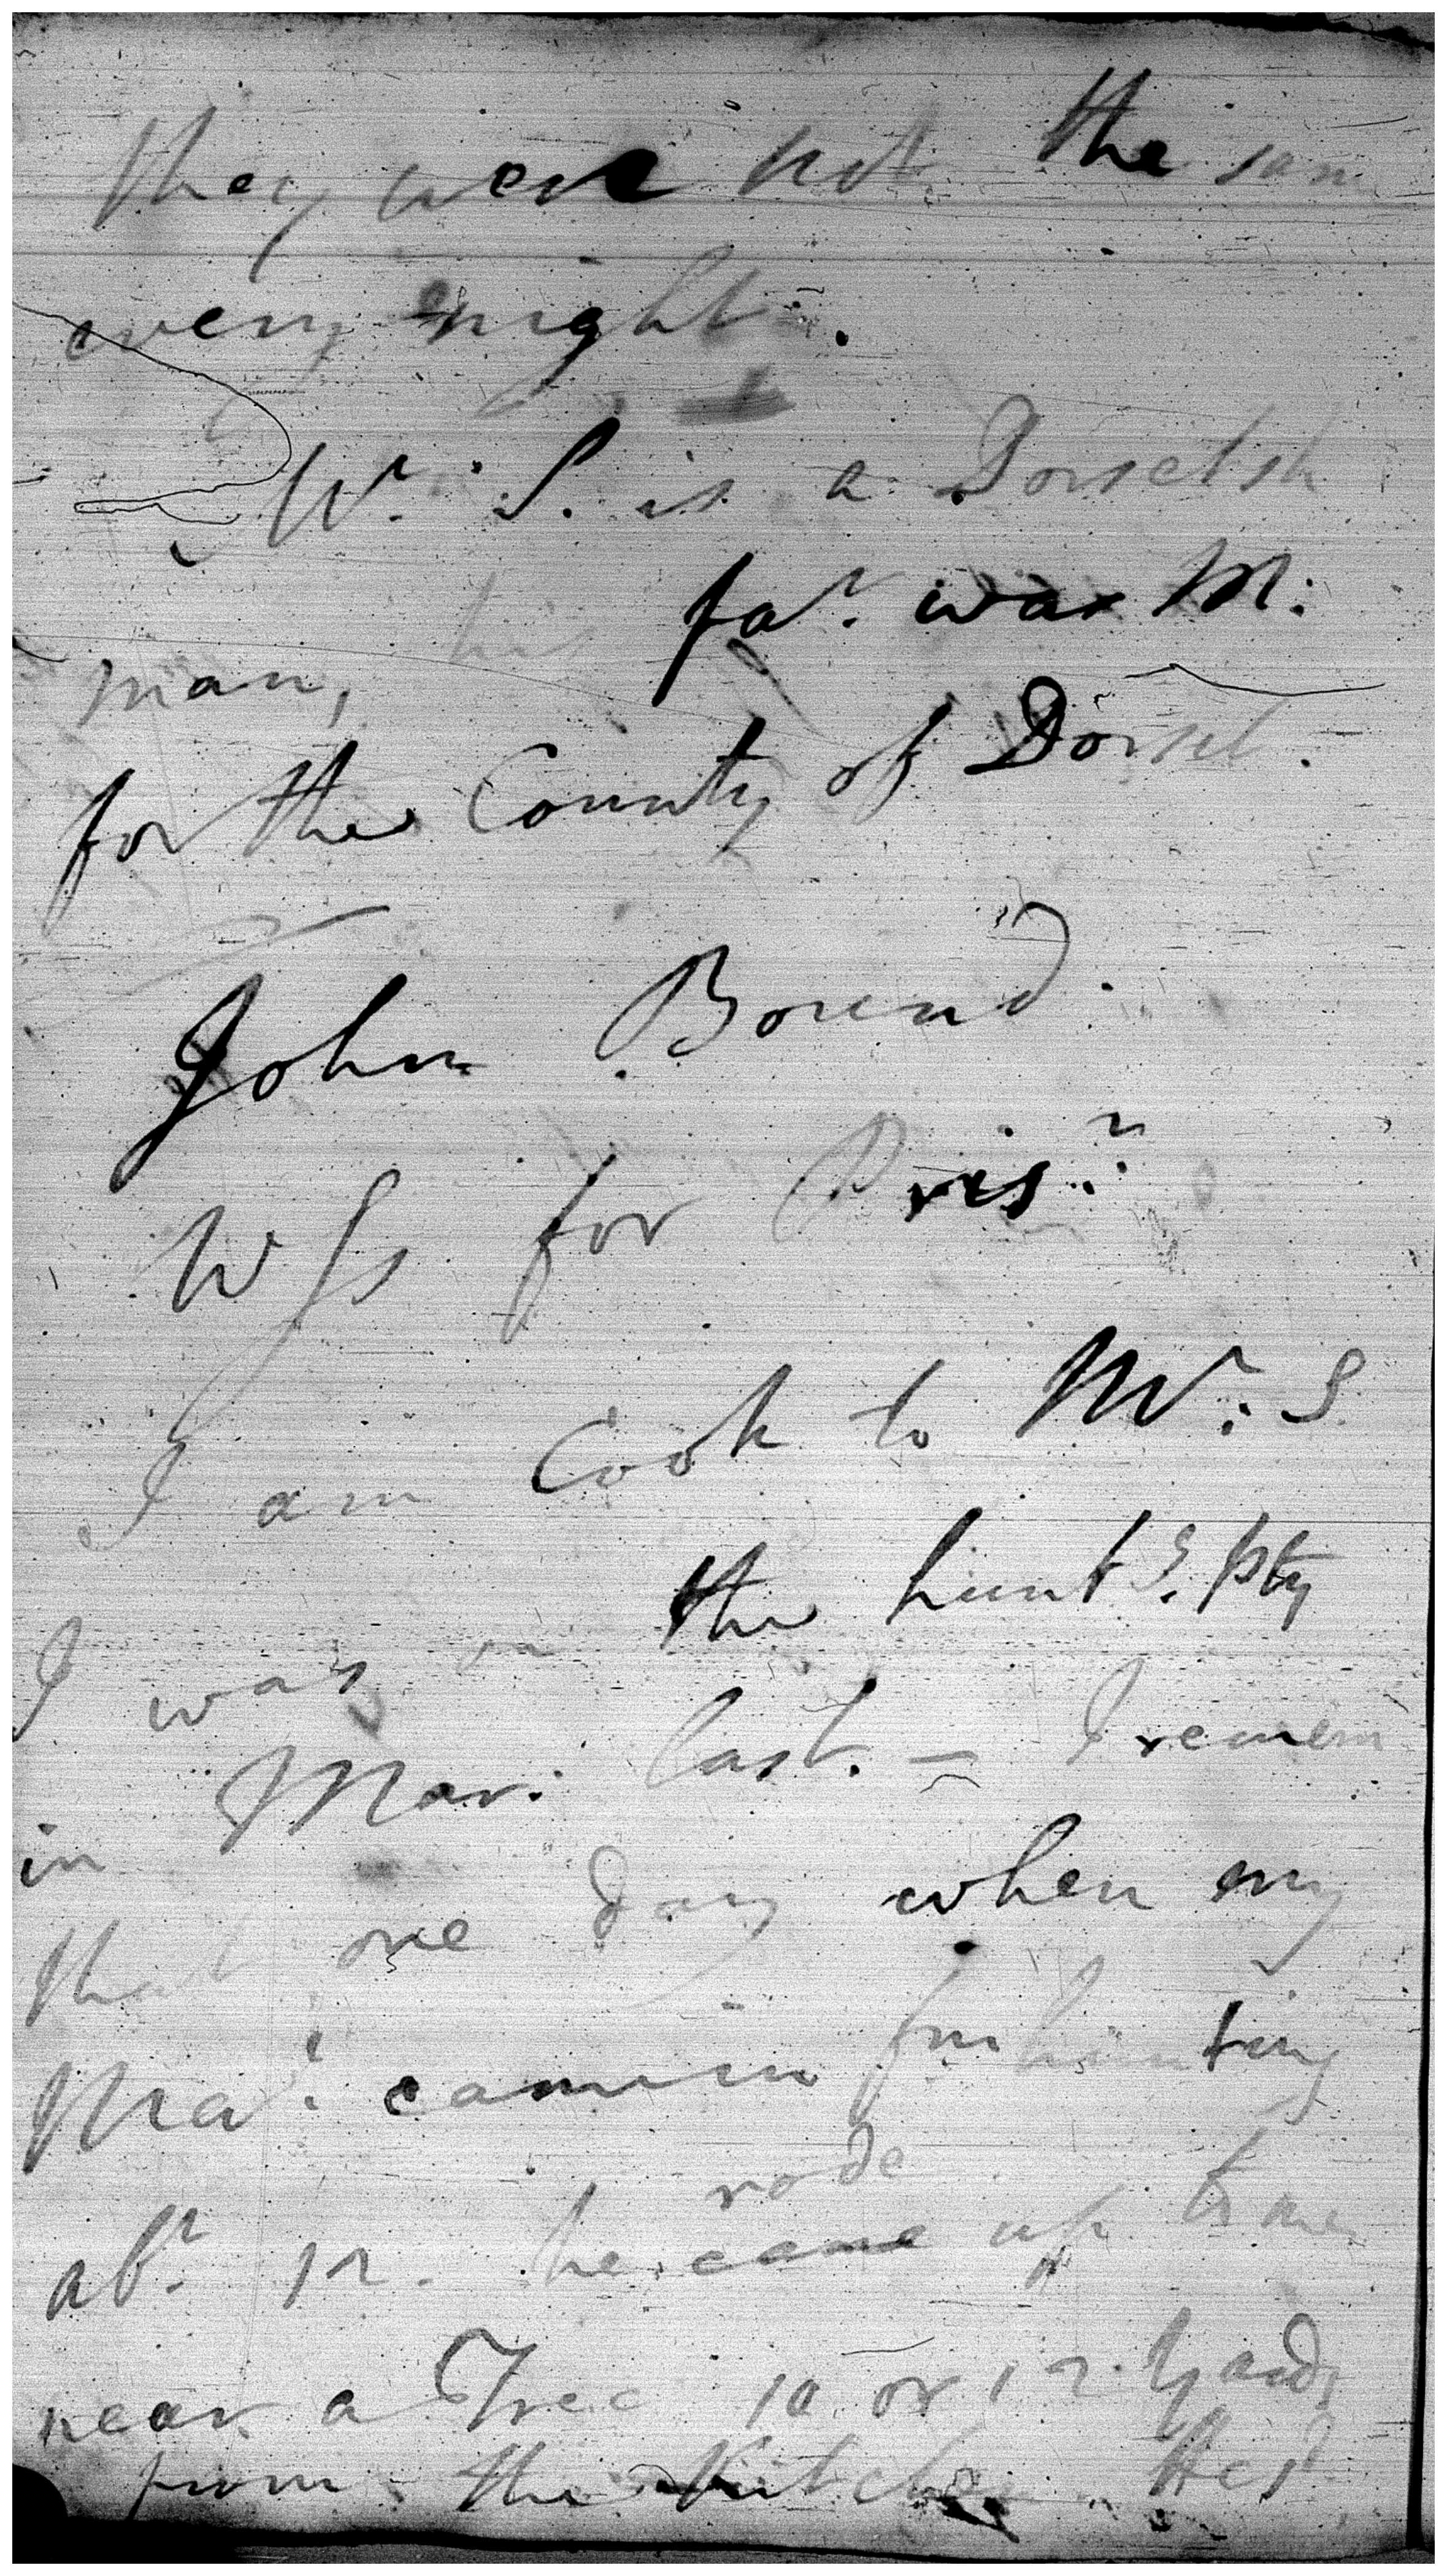 they were not the sam
every night.
Mr. S. is a Dorsetsh
man, his far. was M.
for the County of Dorset.
John Bound
Wss for Prisr.
I am Cook to Mr. S.
I was on the huntg. pty
in Mar. last. — I remem
that one day when my
Mar. came in fm hunting
abt. 12. he came rode up to me
near a Tree 10 or 12 Yards
from the Kitchen He sd